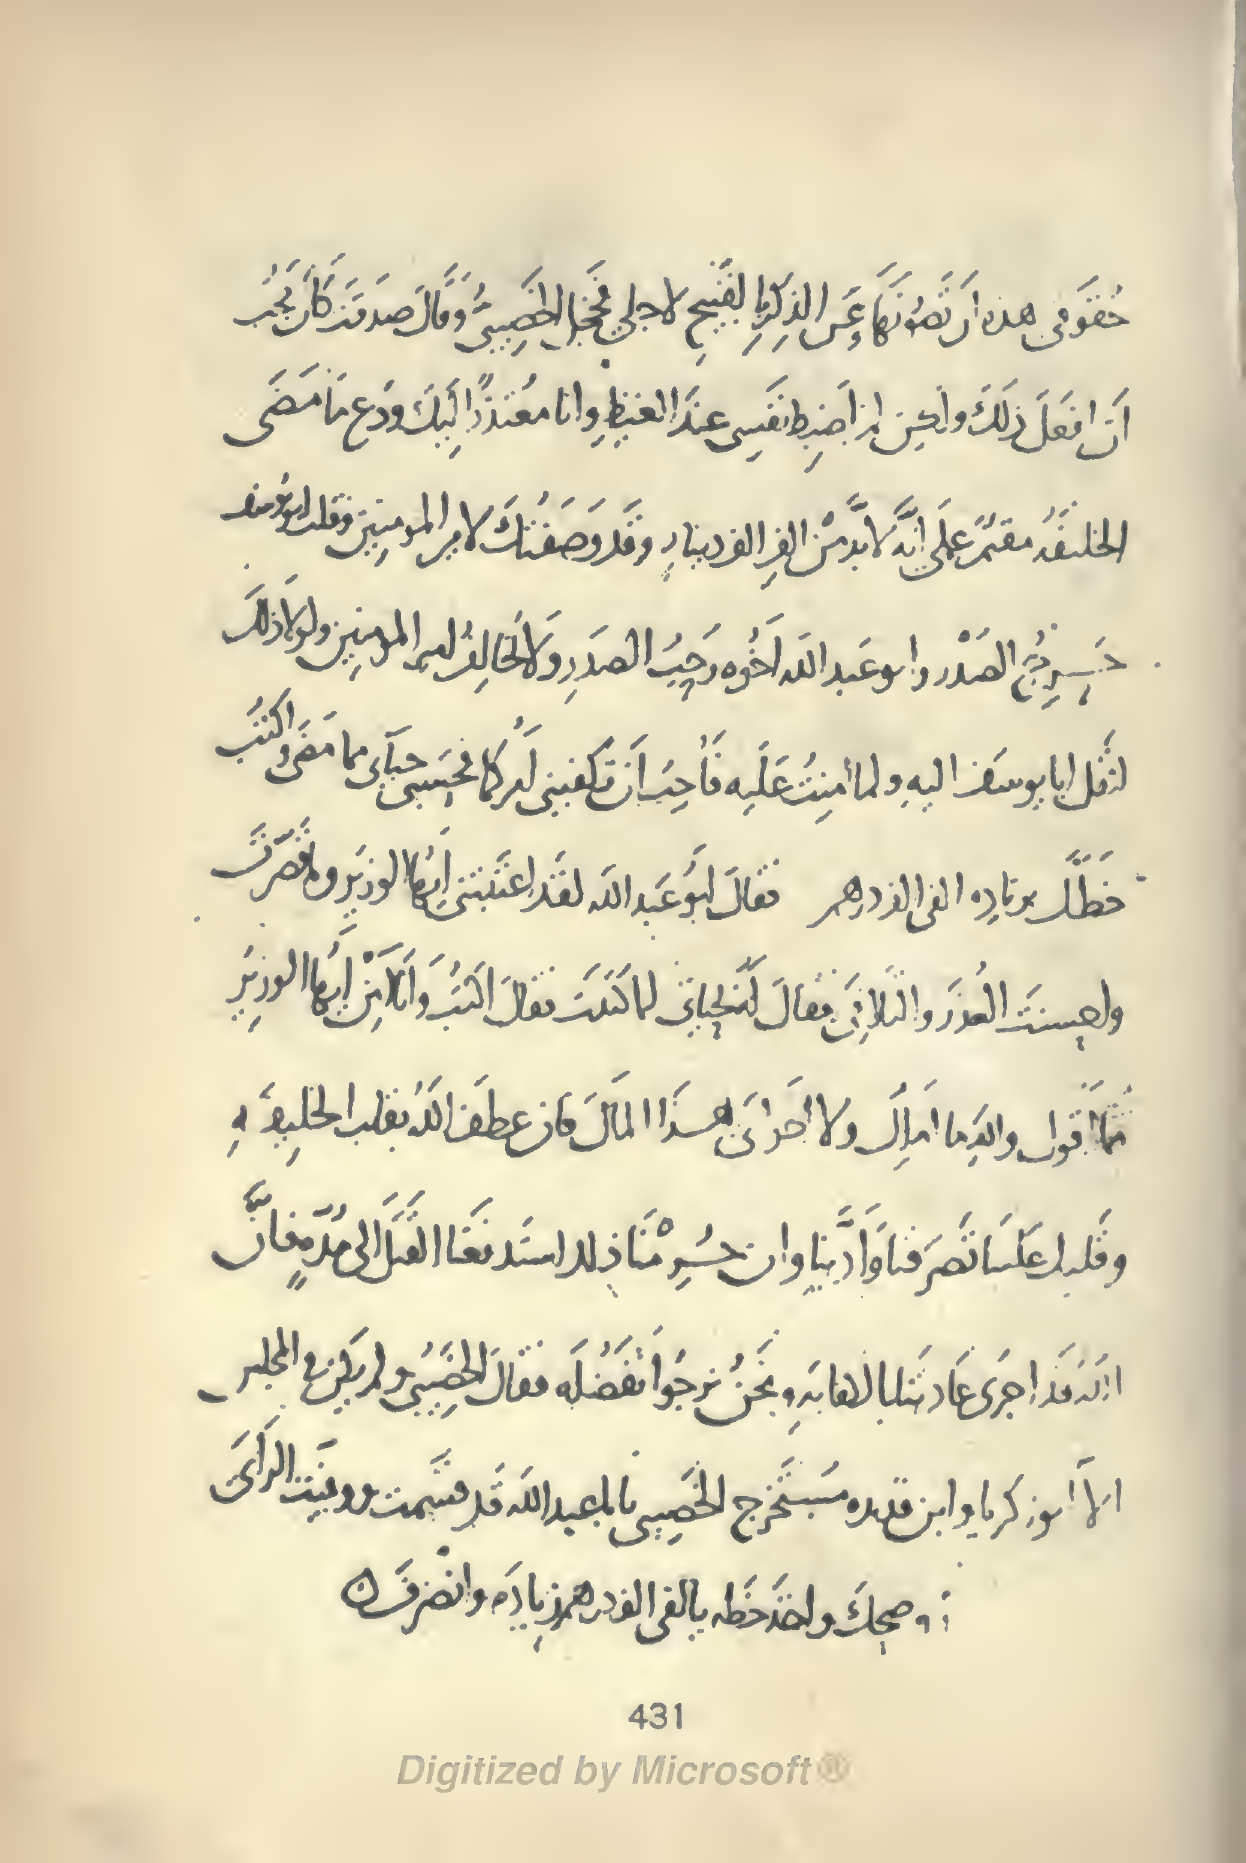 حُقَوقِى هذه ان تَصُونَهَا عَن الذِكْرِ بالقَبِيحِ لاجلى فخجل الخَصِيبىُّ وَقَالَ صَدقتَ كَانَ يَجُب
اَن افعَلَ ذلَكَ ولكن لم اَضبِط نَفسِى عندَ الغيظِ وانا مُعتَذرٌ اليَكَ ودَع مَا مَضَى
الخليفَهُ مقيمٌ عَلَى اِنَّه لا بدّ مِنْ الفِ الف دينارٍ وقَد وَصَفتُكَ لامير المومنِين وقلت ابو يوسف
الصَدْر وابو عَبد الله اَخُوه رَحِيبُ الصَدرِ وَلا يُخالِفُ امير المومنِين ولولا ذلك
لثقل ابا يوسَف اليهِ ولما امِنتُ عَلَيه فَاُحِبُ اَن تكفينى اَمركما فحَسبى حيآى مما مَضَى واكتُب
خطّك بزيادِه الفى الف درهم فقالَ اَبُو عَبد الله لقَد اعتَبتنى اَيُها الوزيَر وما قصّرتَ
العُذرَ والتَلافىَ فقالَ لتكتب فقالَ اكتُبُ واَنَا اَيُّها الوزيرُ
مما اقول والله ما املِك ولا احَد اتىَ هَذَا المالَ فان عطفَ اللهُ بقلب الخليفَهِ
وقَلبك علَينَا تَصَرفنا وَادَّينا وان خسُرِ مْنا ذلك استَدفَعنا القَتلَ الى مُدّهٍ فانَّ
الله قَد اجرَى عَادتَنا بالاقالهِ ونَحَنُ نرجُوا تَفَضُلَه فقالَ الخَصِيبُى ولم يكن فى المجلس
الاّ ابو زكريا وابن قديده مُستَخرِج الخَصِيبى يابا عبد الله قَد وبقيت الراَىَ
وضحِك واخذَ خَطَه بالفى الف درهم زِيادَه وانْصَرفَ
431
Digitized by Microsoft®